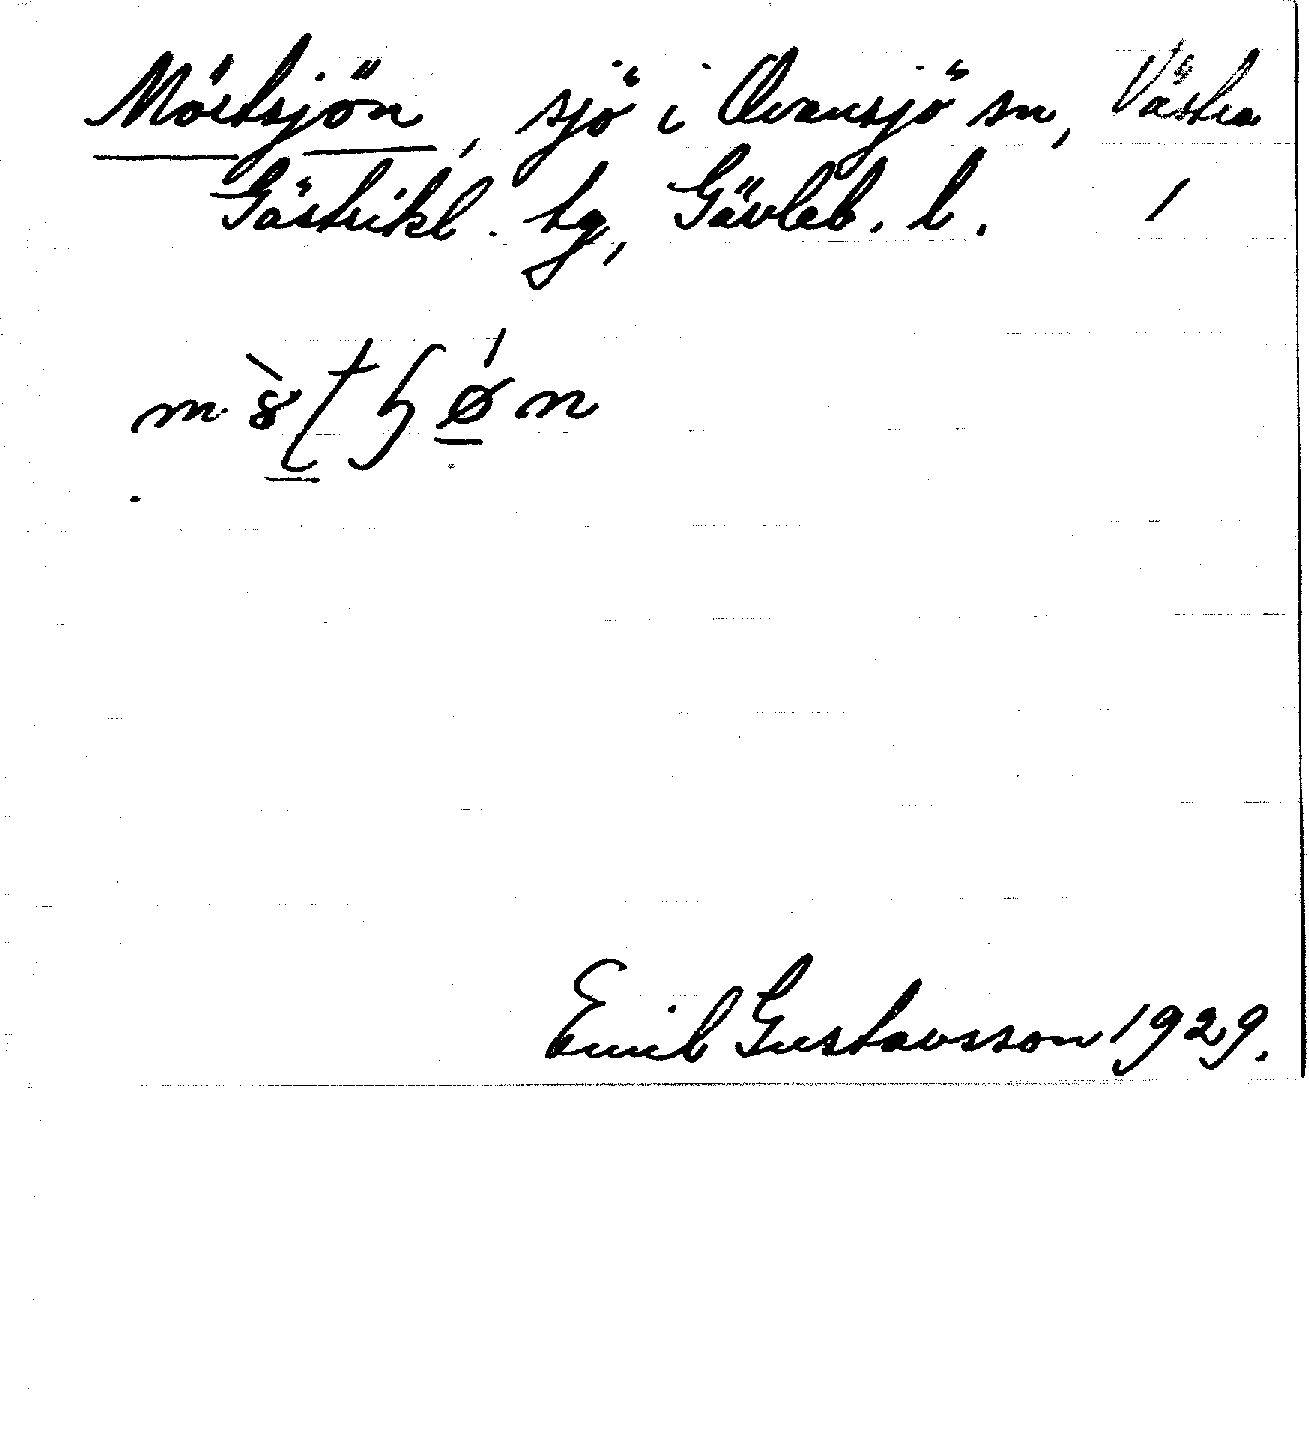 Mörtsjön, sjö i Ovansjö sn, Västra
Gästrikl. tg, Gävleb. l. /
Emil Gustavsson 1929.